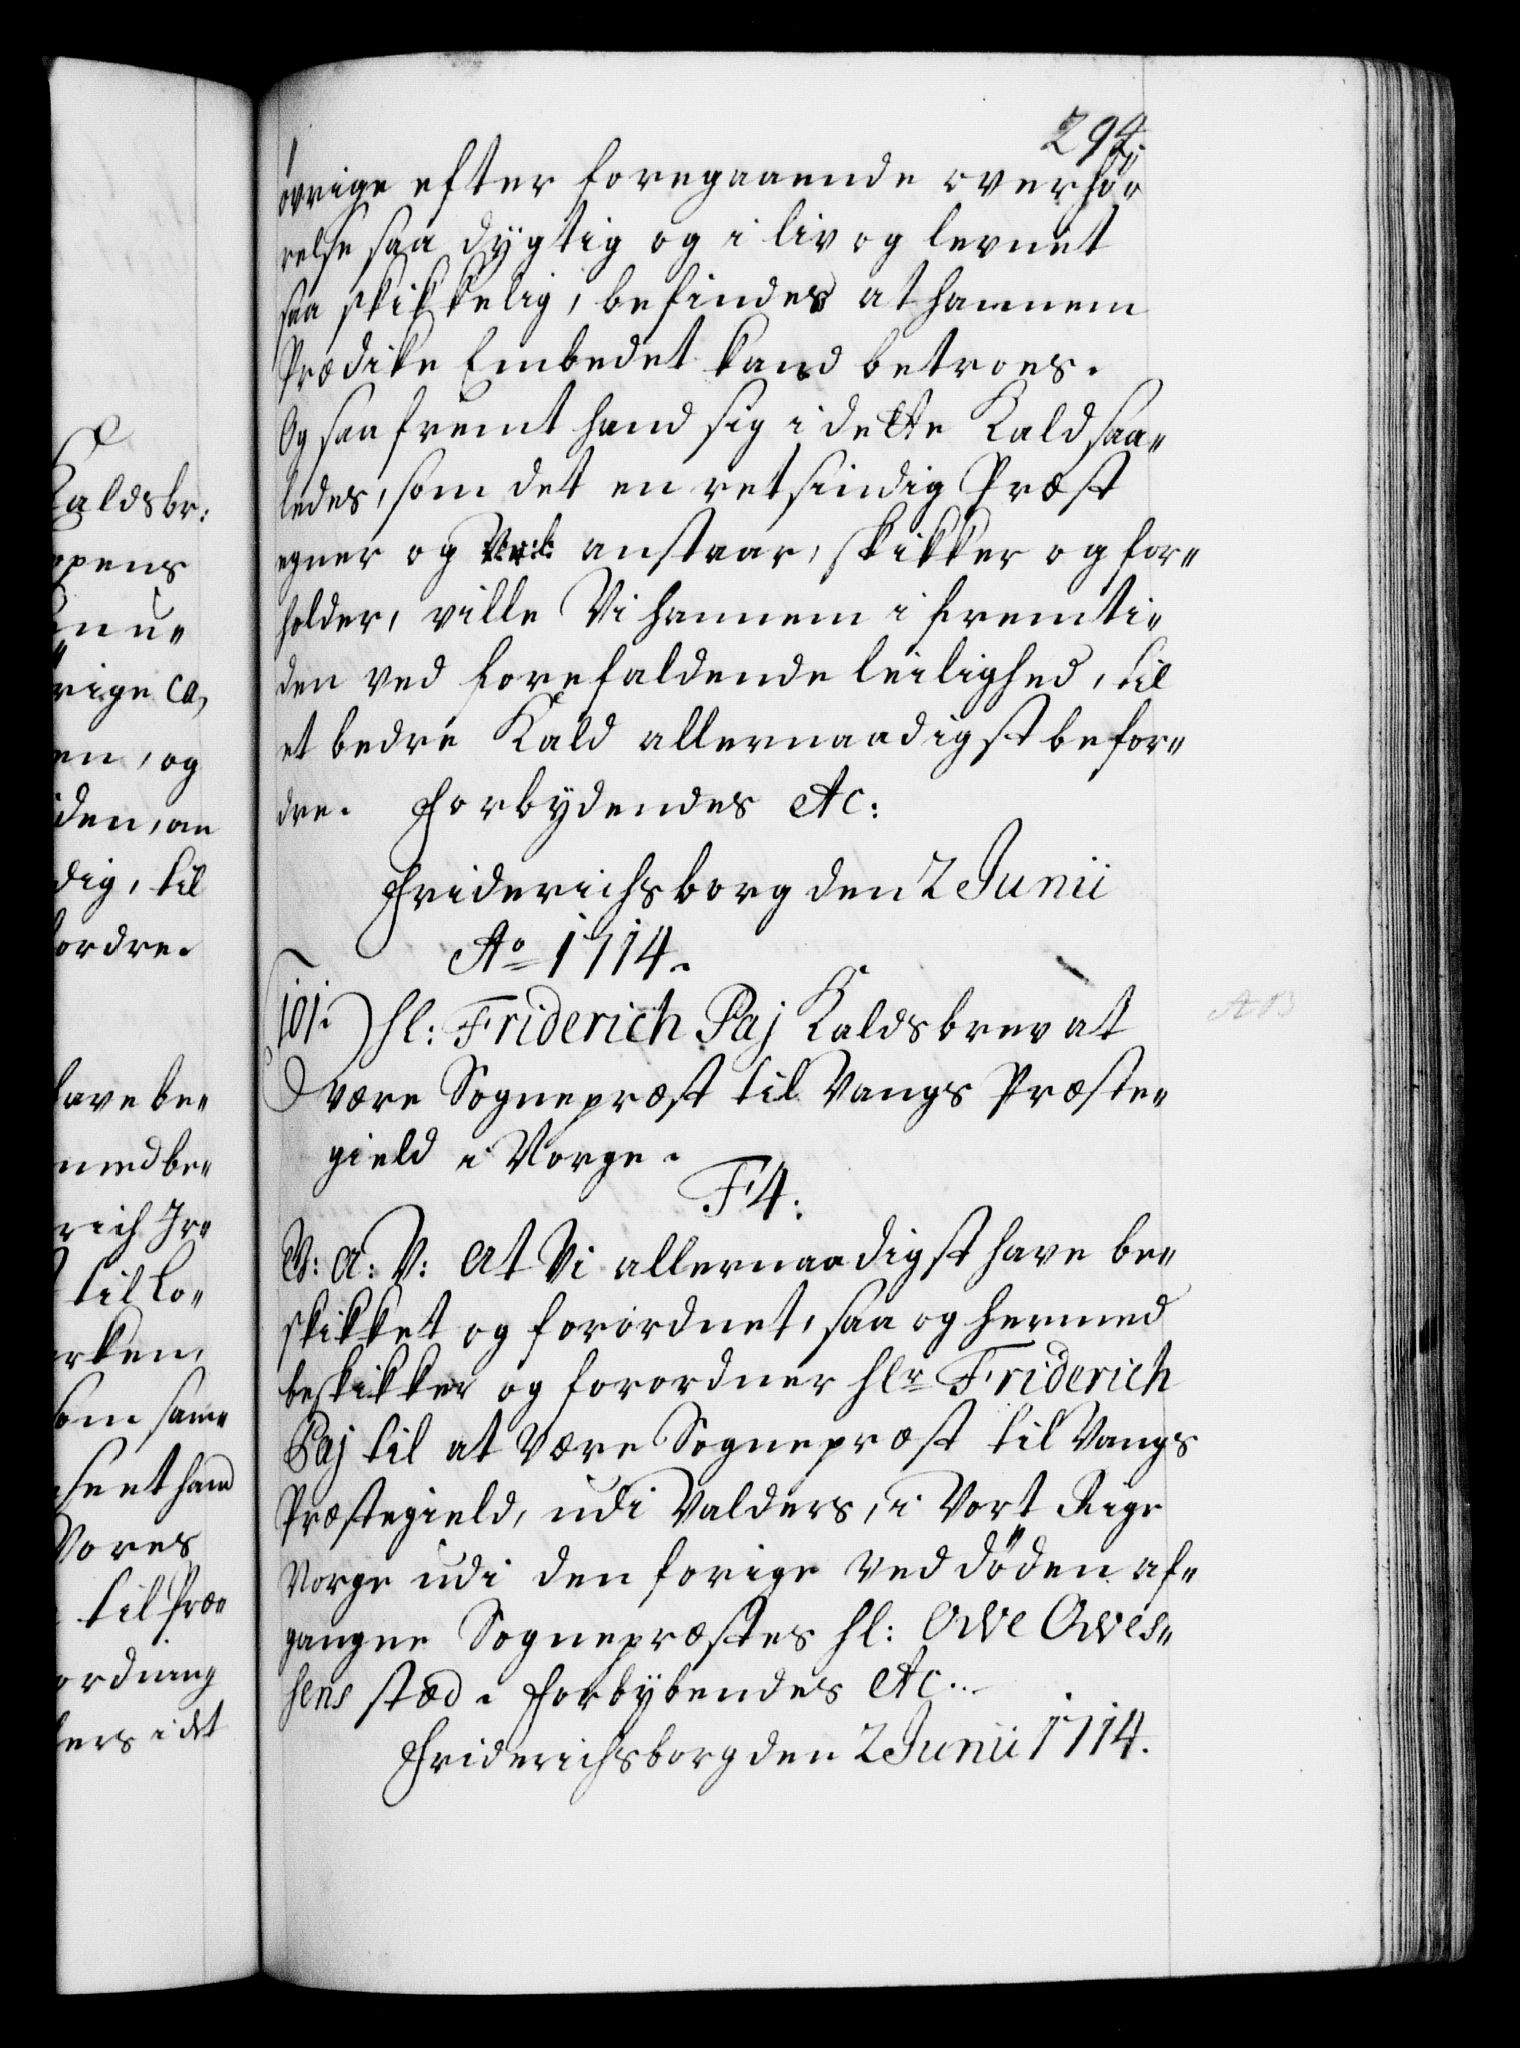 Kaldsbr:
opens
nu„
rige ca,
en, og
iden, an
dig, til
fordre.
have be„
med be„
rich Jr„
til Lo„
rken,
som sam„
seet hand
Vores
til Præ„
ordning
lers i det
294.
övrige efter foregaaende overhör„
relse saa dygtig og i liv og levnet
saa skikkelig, befindes at hannem
Prædike Embedet kand betroes.
Og saafremt hand sig i dette Kald saa„
ledes, som det en retsindig Præst
egner og anstaar, skikker og for„
holder, ville Vi hannem i fremti„
den ved forefaldende leilighed, til
et bedre Kald allernaadigst befor„
dre. Forbydendes etc:
Friderichsborg den 2 Junii
Ao 1714.
101. hl: Friderich Paj Kaldsbrev at
være Sognepræst til Vangs Præste„
gield i Norge.
F4:
G: A: V: At Vi allernaadigst have be„
skikket og forordnet, saa og hermed
beskikker og forordner hlr Friderich
Paj til at være Sognepræst til Vangs
Præstegield, udi Valders, i Vort Rige
Norge udi den forige ved döden af„
gangne Sognepræstes hl: Owe Owes„
sens stæd. Forbybendes etc.
Friderichsborg den 2 Junii 1714.